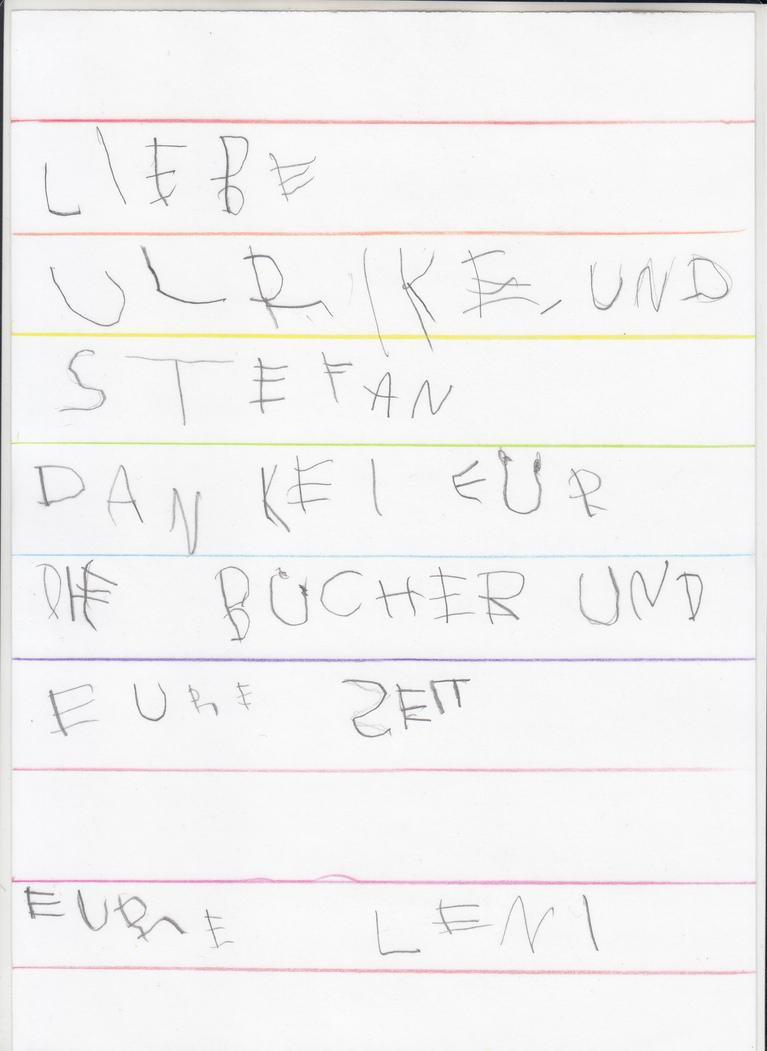 LIEBE
ULRIKE, UND
STEFAN
DANKE! FÜR
DIE BÜCHER UND
EURE ZEIT
EURE LENI